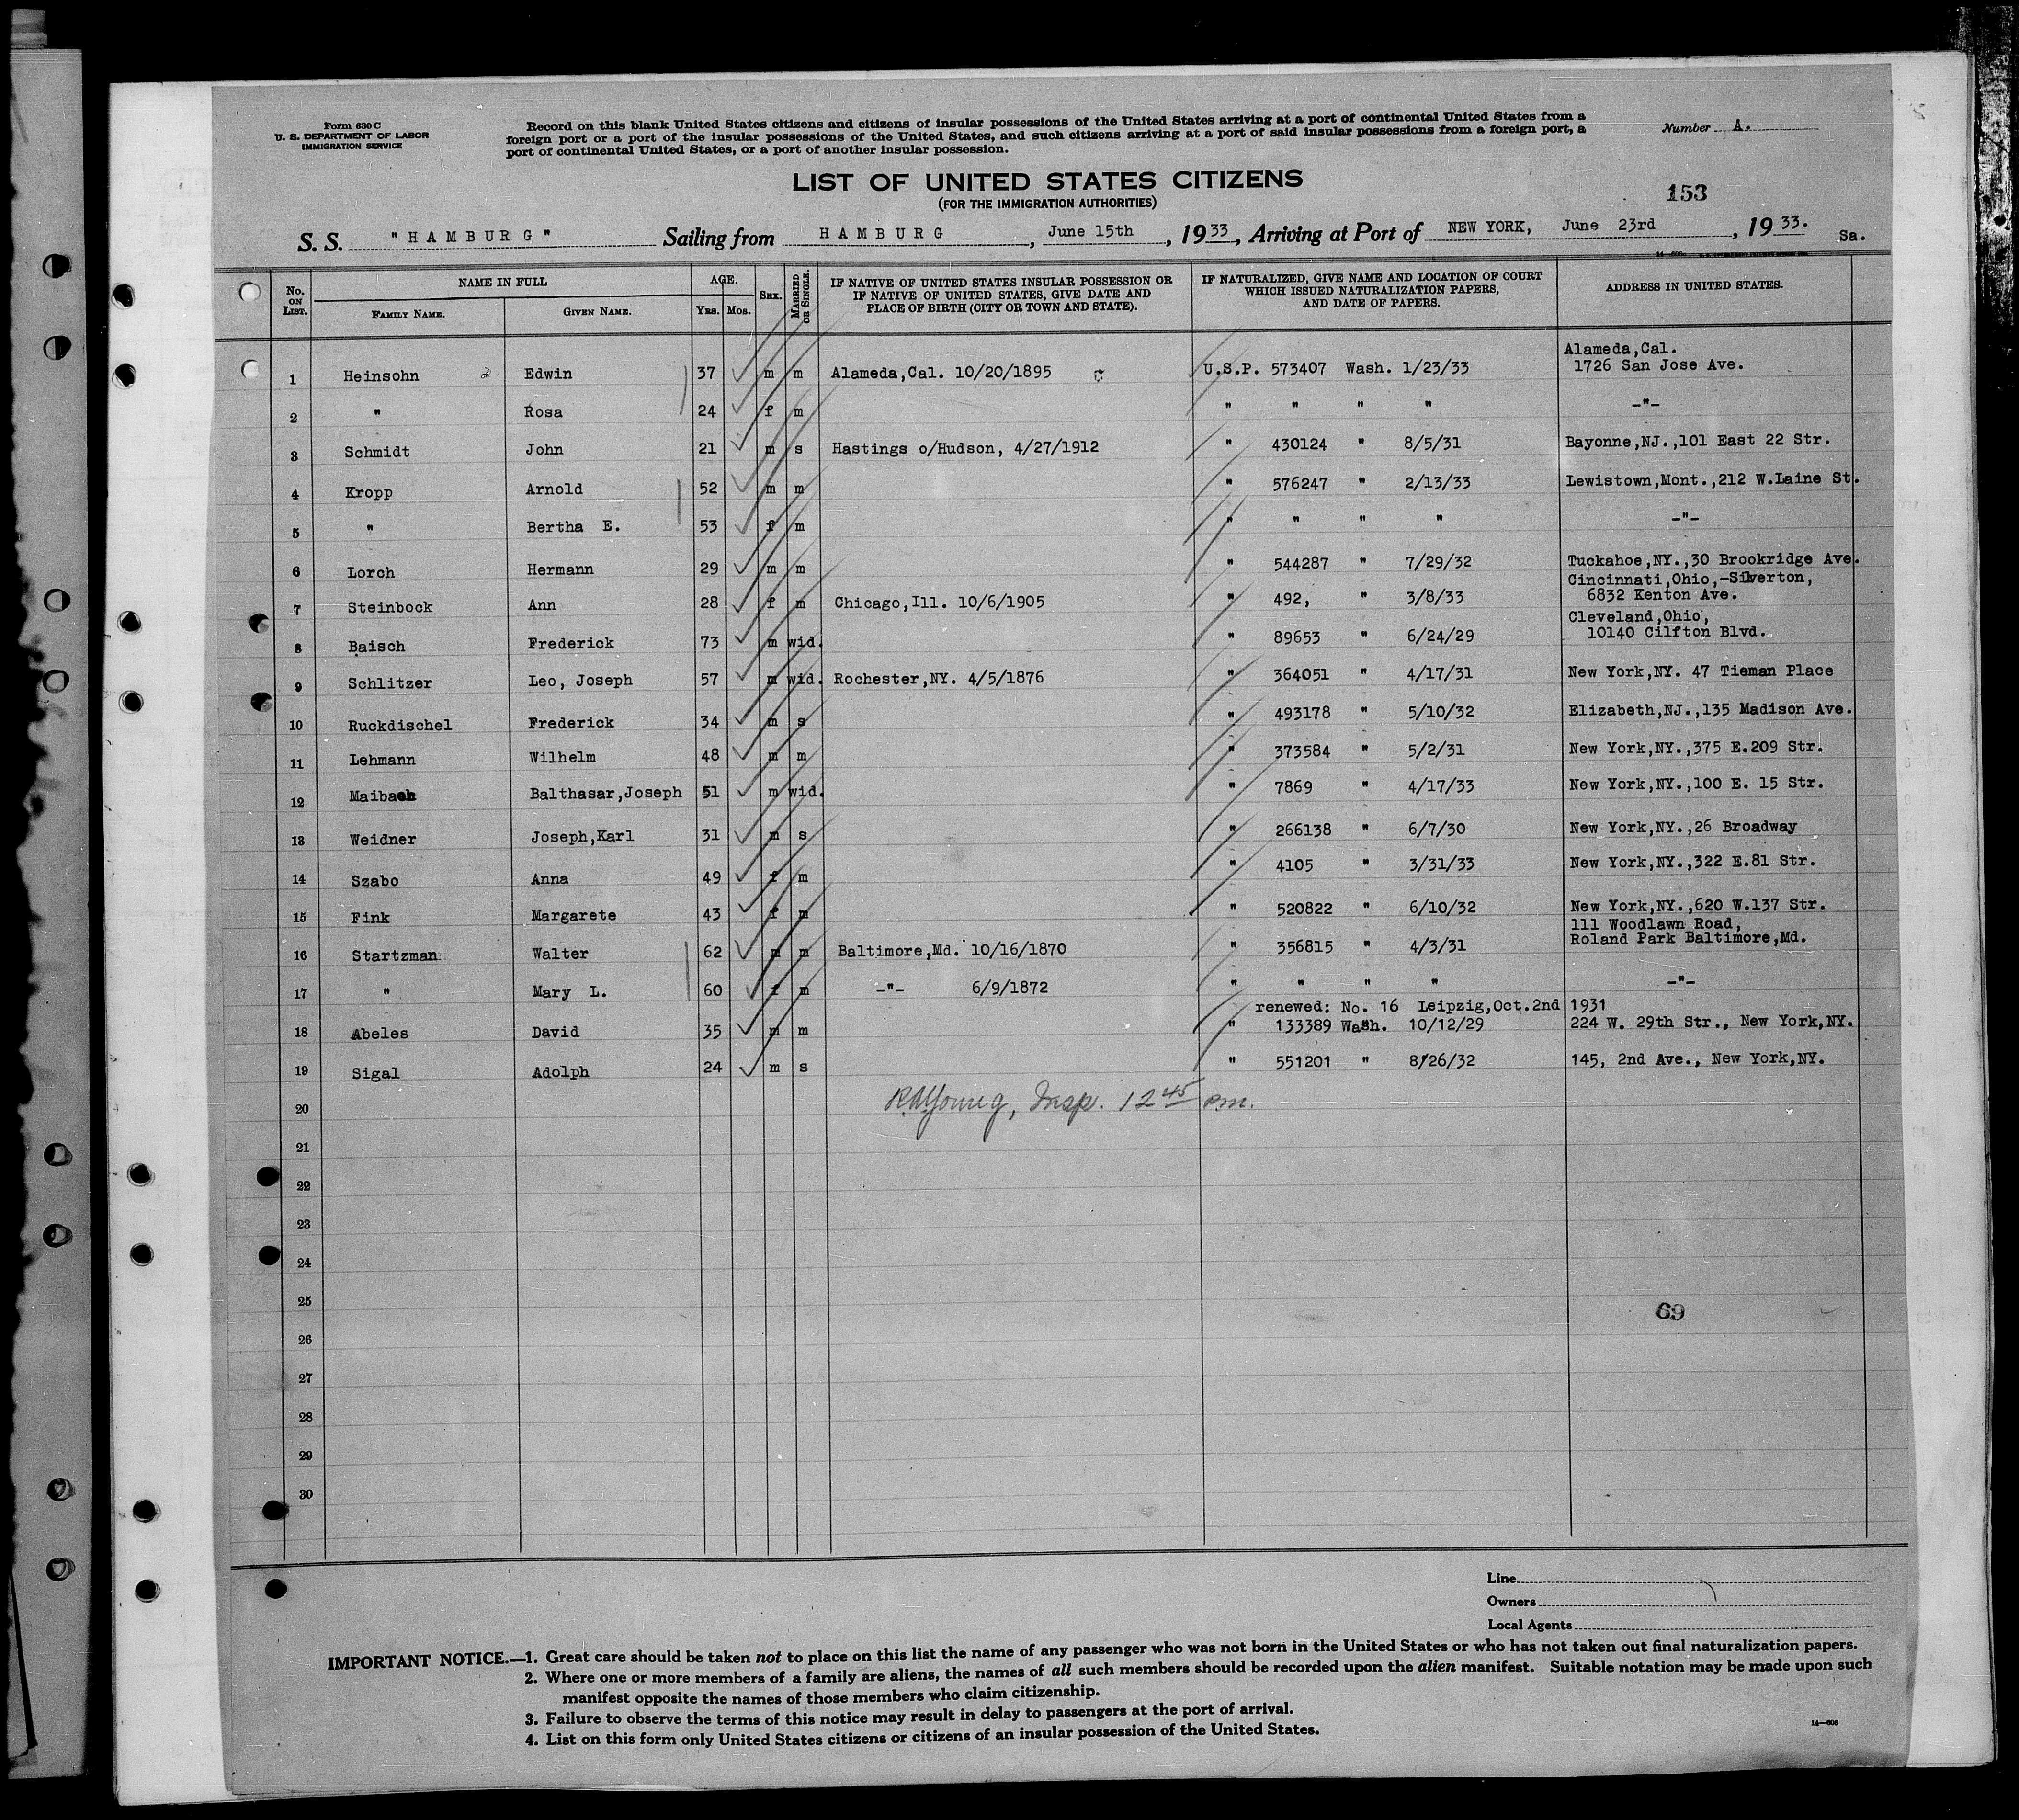 Form 630 C
U. S. DEPARTMENT OF LABOR
IMMIGRATION SERVICE
Record on this blank United States citizens and citizens of insular possessions of the United States arriving at a port of continental United States from a
foreign port or a port of the insular possessions of the United States, and such citizens arriving at a port of said insular possessions from a foreign port, a
port of continental United States, or a port of another insular possession.
Number A.
LIST OF UNITED STATES CITIZENS
(FOR THE IMMIGRATION AUTHORITIES)
153
S. S. "HAMBURG" Sailing from HAMBURG, June 15th, 1933, Arriving at Port of NEW YORK, June 23rd, 1933. Sa.
No. ON LIST. NAME IN FULL FAMILY NAME. GIVEN NAME. AGE. YRS. MOS. SEX. MARRIED OR SINGLE. IF NATIVE OF UNITED STATES INSULAR POSSESSION OR IF NATIVE OF UNITED STATES, GIVE DATE AND PLACE OF BIRTH (CITY OR TOWN AND STATE). IF NATURALIZED, GIVE NAME AND LOCATION OF COURT WHICH ISSUED NATURALIZATION PAPERS, AND DATE OF PAPERS. ADDRESS IN UNITED STATES.
Alameda,Cal.
1 Heinsohn 2 Edwin 37 m m Alameda,Cal. 10/20/1895 U.S.P. 573407 Wash. 1/23/33 1726 San Jose Ave.
2 " Rosa 24 f m " " " " -"-
3 Schmidt John 21 m s Hastings o/Hudson, 4/27/1912 " 430124 " 8/5/31 Bayonne,NJ.,101 East 22 Str.
4 Kropp Arnold 52 m m " 576247 " 2/13/33 Lewistown,Mont.,212 W.Laine St.
5 " Bertha E. 53 f m " " " " -"-
6 Lorch Hermann 29 m m " 544287 " 7/29/32 Tuckahoe,NY.,30 Brookridge Ave.
Cincinnati,Ohio,-Silverton,
7 Steinbock Ann 28 f m Chicago,Ill. 10/6/1905 " 492, " 3/8/33 6832 Kenton Ave.
Cleveland,Ohio,
8 Baisch Frederick 73 m wid. " 89653 " 6/24/29 10140 Cilfton Blvd.
9 Schlitzer Leo, Joseph 57 m wid. Rochester,NY. 4/5/1876 " 364051 " 4/17/31 New York,NY. 47 Tieman Place
10 Ruckdischel Frederick 34 m s " 493178 " 5/10/32 Elizabeth,NJ.,135 Madison Ave.
11 Lehmann Wilhelm 48 m m " 373584 " 5/2/31 New York,NY.,375 E.209 Str.
12 Maibach Balthasar,Joseph 51 m wid. " 7869 " 4/17/33 New York,NY.,100 E. 15 Str.
13 Weidner Joseph,Karl 31 m s " 266138 " 6/7/30 New York,NY.,26 Broadway
14 Szabo Anna 49 f m " 4105 " 3/31/33 New York,NY.,322 E.81 Str.
15 Fink Margarete 43 f m " 520822 " 6/10/32 New York,NY.,620 W.137 Str.
111 Woodlawn Road,
16 Startzman Walter 62 m m Baltimore,Md. 10/16/1870 " 356815 " 4/3/31 Roland Park Baltimore,Md.
17 " Mary L. 60 f m -"- 6/9/1872 " " " " -"-
renewed: No. 16 Leipzig,Oct.2nd 1931
18 Abeles David 35 m m " 133389 Wash. 10/12/29 224 W. 29th Str., New York,NY.
19 Sigal Adolph 24 m s " 551201 " 8/26/32 145, 2nd Ave., New York,NY.
20 R.A.Young, Insp. 12 45 p.m.
21
22
23
24
25
69
26
27
28
29
30
Line
Owners
Local Agents
IMPORTANT NOTICE.—1. Great care should be taken not to place on this list the name of any passenger who was not born in the United States or who has not taken out final naturalization papers.
2. Where one or more members of a family are aliens, the names of all such members should be recorded upon the alien manifest. Suitable notation may be made upon such
manifest opposite the names of those members who claim citizenship.
3. Failure to observe the terms of this notice may result in delay to passengers at the port of arrival.
4. List on this form only United States citizens or citizens of an insular possession of the United States.
14—608